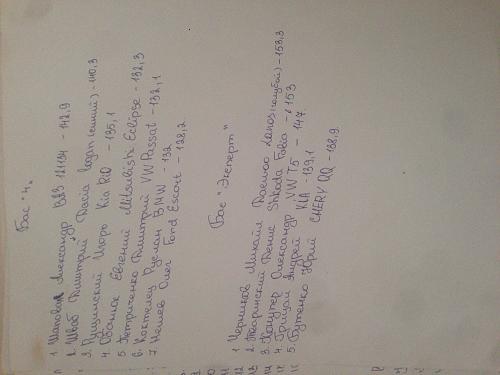 Бас "4"
1 Шаповал Александр ВАЗ 21134 - 142,9
2. Швб Дмитрий Dacia logan (синий) - 140,3
3. Пушинский Игорь Kia Rio - 135,1
4. Обанюк Евгений Mitsubishi Eclipse - 132,3
5 Петриченко Дмитрий VW Passat - 132,1
6. Коктелец Руслан BMW - 132
7 Нешев Олег Ford Escort - 128,2
Бас "Эксперт"
1 Черников Михаил Daewoo Lanos (голубой) - 153,3
2. Денис Shkoda Fabia - 153
3. Александр VW T5 - 147
4. Грицай Андрей KIA - 139,1
5. Бутенко Юрий CHERY QQ - 138,9